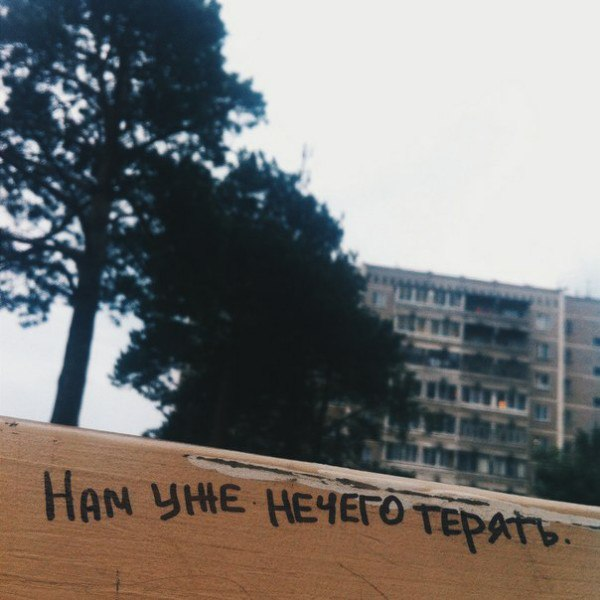 Нам уже нечего терять.